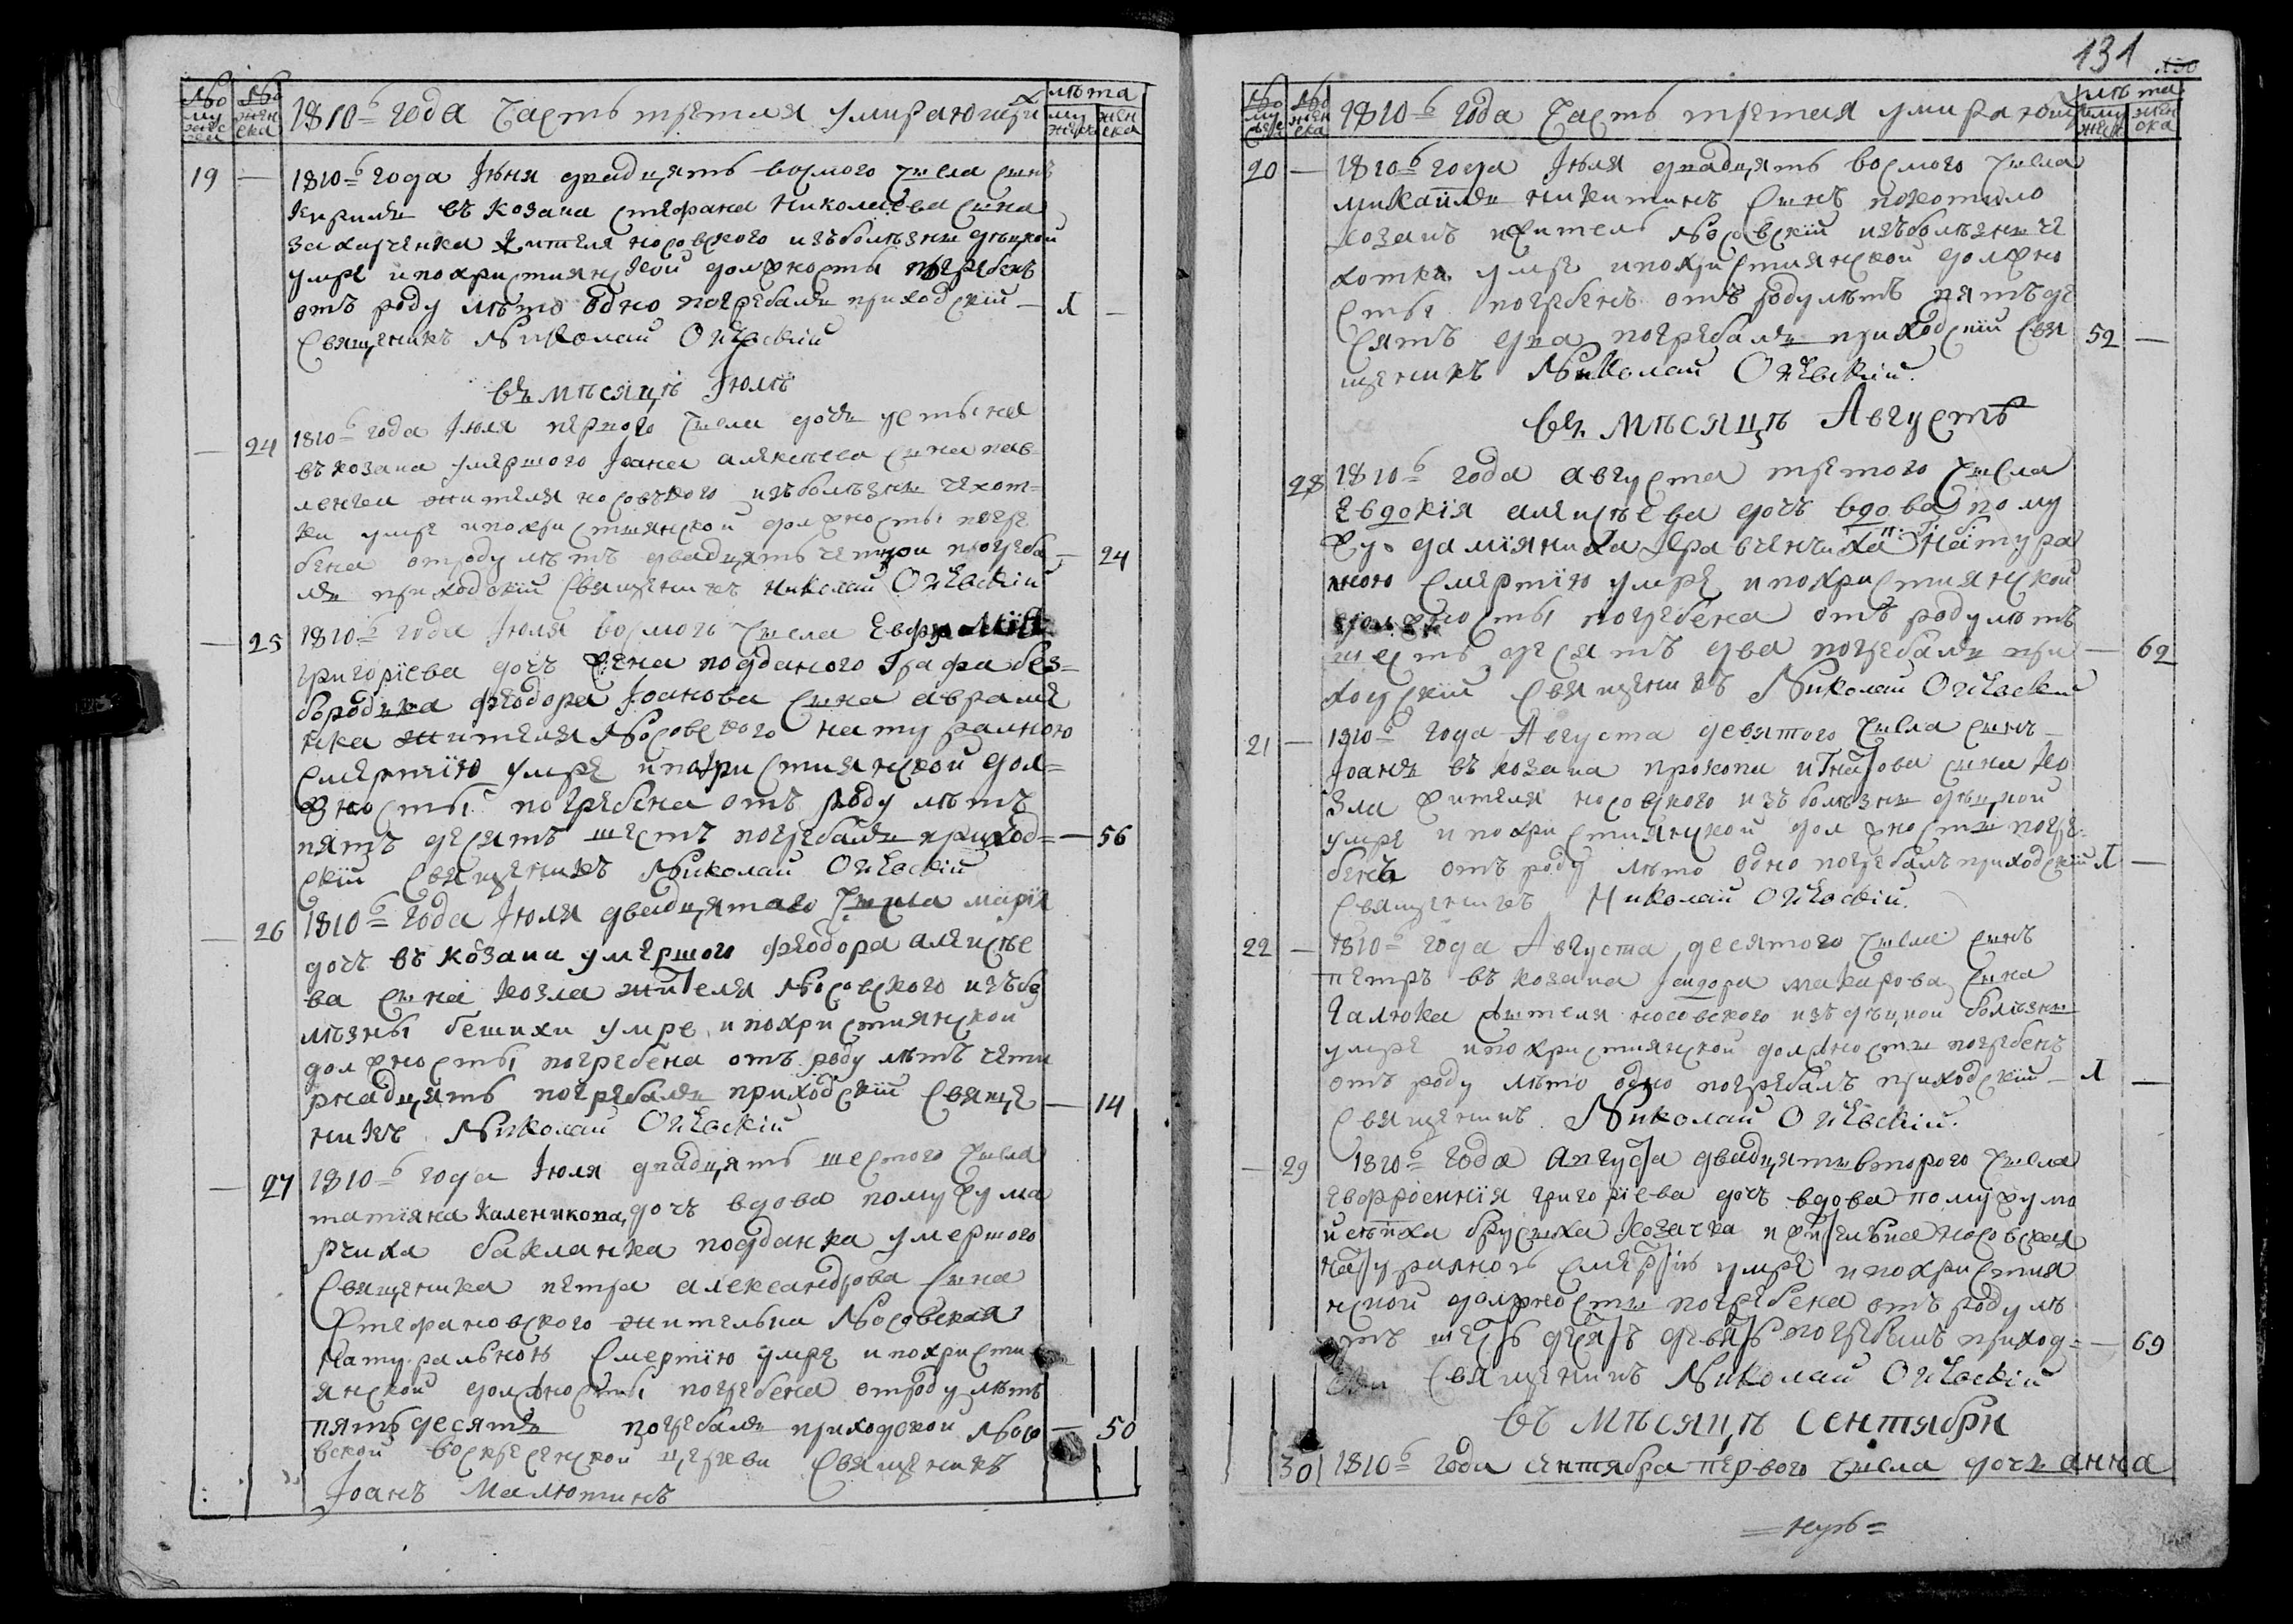 131
№ мужеска
№ женска
1810го года Часть третяя умирающи
лѣта
мужеска
женска
19
1810го года Іюня двадцять восмого числа синъ
Кирилъ въ козака стефана николаева сина
захарченка жителя носовского изъ болѣзни дѣцкой
умре и по християнской должносты погребенъ
отъ роду лѣто одно погребалъ приходскій — 1 —
священикъ Николай Огіевскій
въ мѣсяцѣ Іюлѣ
24
1810го года Іюля первого числа дочъ
въ козака умершого Іоана алексѣева сина пав-
ленка жителя носовского изъ болѣзни чахот-
ки умре и по християнской должносты погре
бена отроду лѣтъ двадцять четири погреба — 24
лъ приходскій священикъ николай Огіевскій
25
1810го года Іюля восмого числа Евфимія
григоріева дочъ жена подданого Графа без-
бородка федора Іоанова сина авраме
нка жителя Носовского натуралною
смертию умре и по християнской дол-
жносты погребена отъ роду лѣтъ
пятъ десятъ шесть погребалъ приход- — 56
скій священикъ Николай Огіевскій
26
1810го года Іюля двадцятаго числа марія
дочъ въ козака умершого федора алексѣе
ва сина козла жителя Носовского изъ бо
лѣзны бешихи умре и по християнской
должносты погребена отъ роду лѣтъ чети
рнадцять погребалъ приходскій свяще — 14
никъ Николай Огіевскій
27
1810го года Іюля двадцять шестого числа
татіяна Каленикова дочъ вдова по мужу ма
рчиха бакланка подданка умершого
священика петра александрова сина
Стефановского жителька Носовская
натуральною смертію умре и по христи
янской должносты погребена отроду лѣтъ
пятьдесятъ погребалъ приходской Носо — 50
вской воскресенской церкви священикъ
Іоанъ Малютинъ
№ мужеска
№ женска
1810го года Часть третяя умирающи
лѣта
мужеск
женска
20 —
1810го года Іюля двадцять восмого числа
михаилъ никитинъ синъ покотило
козакъ житель Носовскій изъ болѣзни че
хотки умре и по християнской должно
сты погребенъ отъ роду лѣтъ пятьде
сятъ два погребалъ приходскій свя 52 —
щеникъ Николай Огіевскій.
въ мѣсяцѣ Августѣ
28
1810го года августа третого числа
Евдокія алексѣева дочъ вдова по му
жу даміяниха натура
лною смертію умре и по християнской
должносты погребена отъ роду лѣтъ
шесть десятъ два погребалъ при — 62
ходскій священикъ Николай Огіевскій
21 —
1810го года Августа девятого числа синъ
Іоанъ въ козака прокопа игнатова сина ко
зла жителя носовского изъ болѣзни дѣцкой
умре и по християнской должности погре-
бенъ отъ роду лѣто одно погребалъ приходскій 1 —
священикъ Николай Огіевскій.
22 —
1810го года Августа десятого числа синъ
петръ въ козака Ісидора макарова сина
Галюка жителя носовского изъ дѣцкой болѣзни
умре и по християнской должности погребенъ
отъ роду лѣто одно погребалъ приходскій — 1 —
священикъ Николай Огіевскій.
29
1810го года августа двадцять второго числа
Евфросинія григоріева дочъ вдова по мужу мо
козачка и жителька носовская
натуралною смертію умре и по христия
нской должности погребена отъ роду лѣ
тъ шесть десять девять погребалъ приход- — 69
скій священикъ Николай Огіевскій
въ мѣсяцѣ сентябри
30
1810го года сентября первого числа дочъ анна